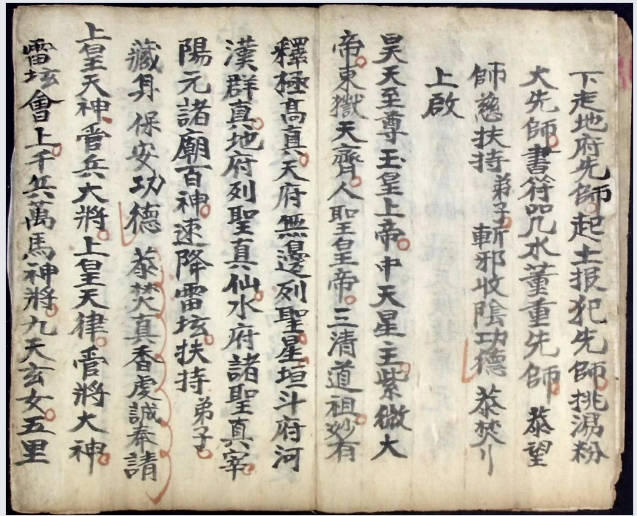 下走地府先師起土报犯先師挑湯粉
大先師書符咒水董重先師 恭望
師慈扶持 弟子 斬邪收陰功德 恭焚刂
上啟
昊天至尊玉皇上帝中天星主紫微大
帝東嶽天齊人聖皇帝三清道祖妙有
釋極高真天府無邊列聖星垣斗府河
漢群真地府列聖真仙水府諸聖真宰
陽元諸廟百神速降雷坛扶持 弟子
藏身保安功德 恭焚真香虔誠奉請
上皇天神管兵大將上皇天律管將大神
雷坛會上千兵萬馬神將九天玄女五里